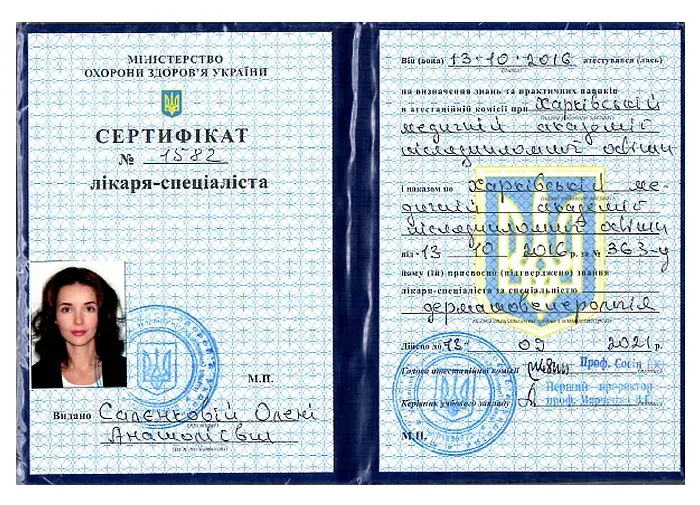 МІНІСТЕРСТВО
ОХОРОНИ ЗДОРОВ'Я УКРАЇНИ
СЕРТИФІКАТ
№ 1582
лікаря-спеціаліста
М.П.
Видано Саленковій Олені
Анатоліївні
Він (вона) 13·10·2016 атестувався (лась)
на визначення знань та практичних навиків
в атестаційній комісії при Харківській
медичній академії
післядипломної освіти
і наказом по Харківській ме-
дичній академії
післядипломної освіти
від 13 10 2016 р. за № 363-у
йому (їй) присвоєно (підтверджено) звання
лікаря-спеціаліста за спеціальністю
дерматовенерологія
Дійсно до 13 09 2021 р.
Голова атестаційної комісії Проф.
Перший проректор
Керівник учбового закладу проф.
М.П.